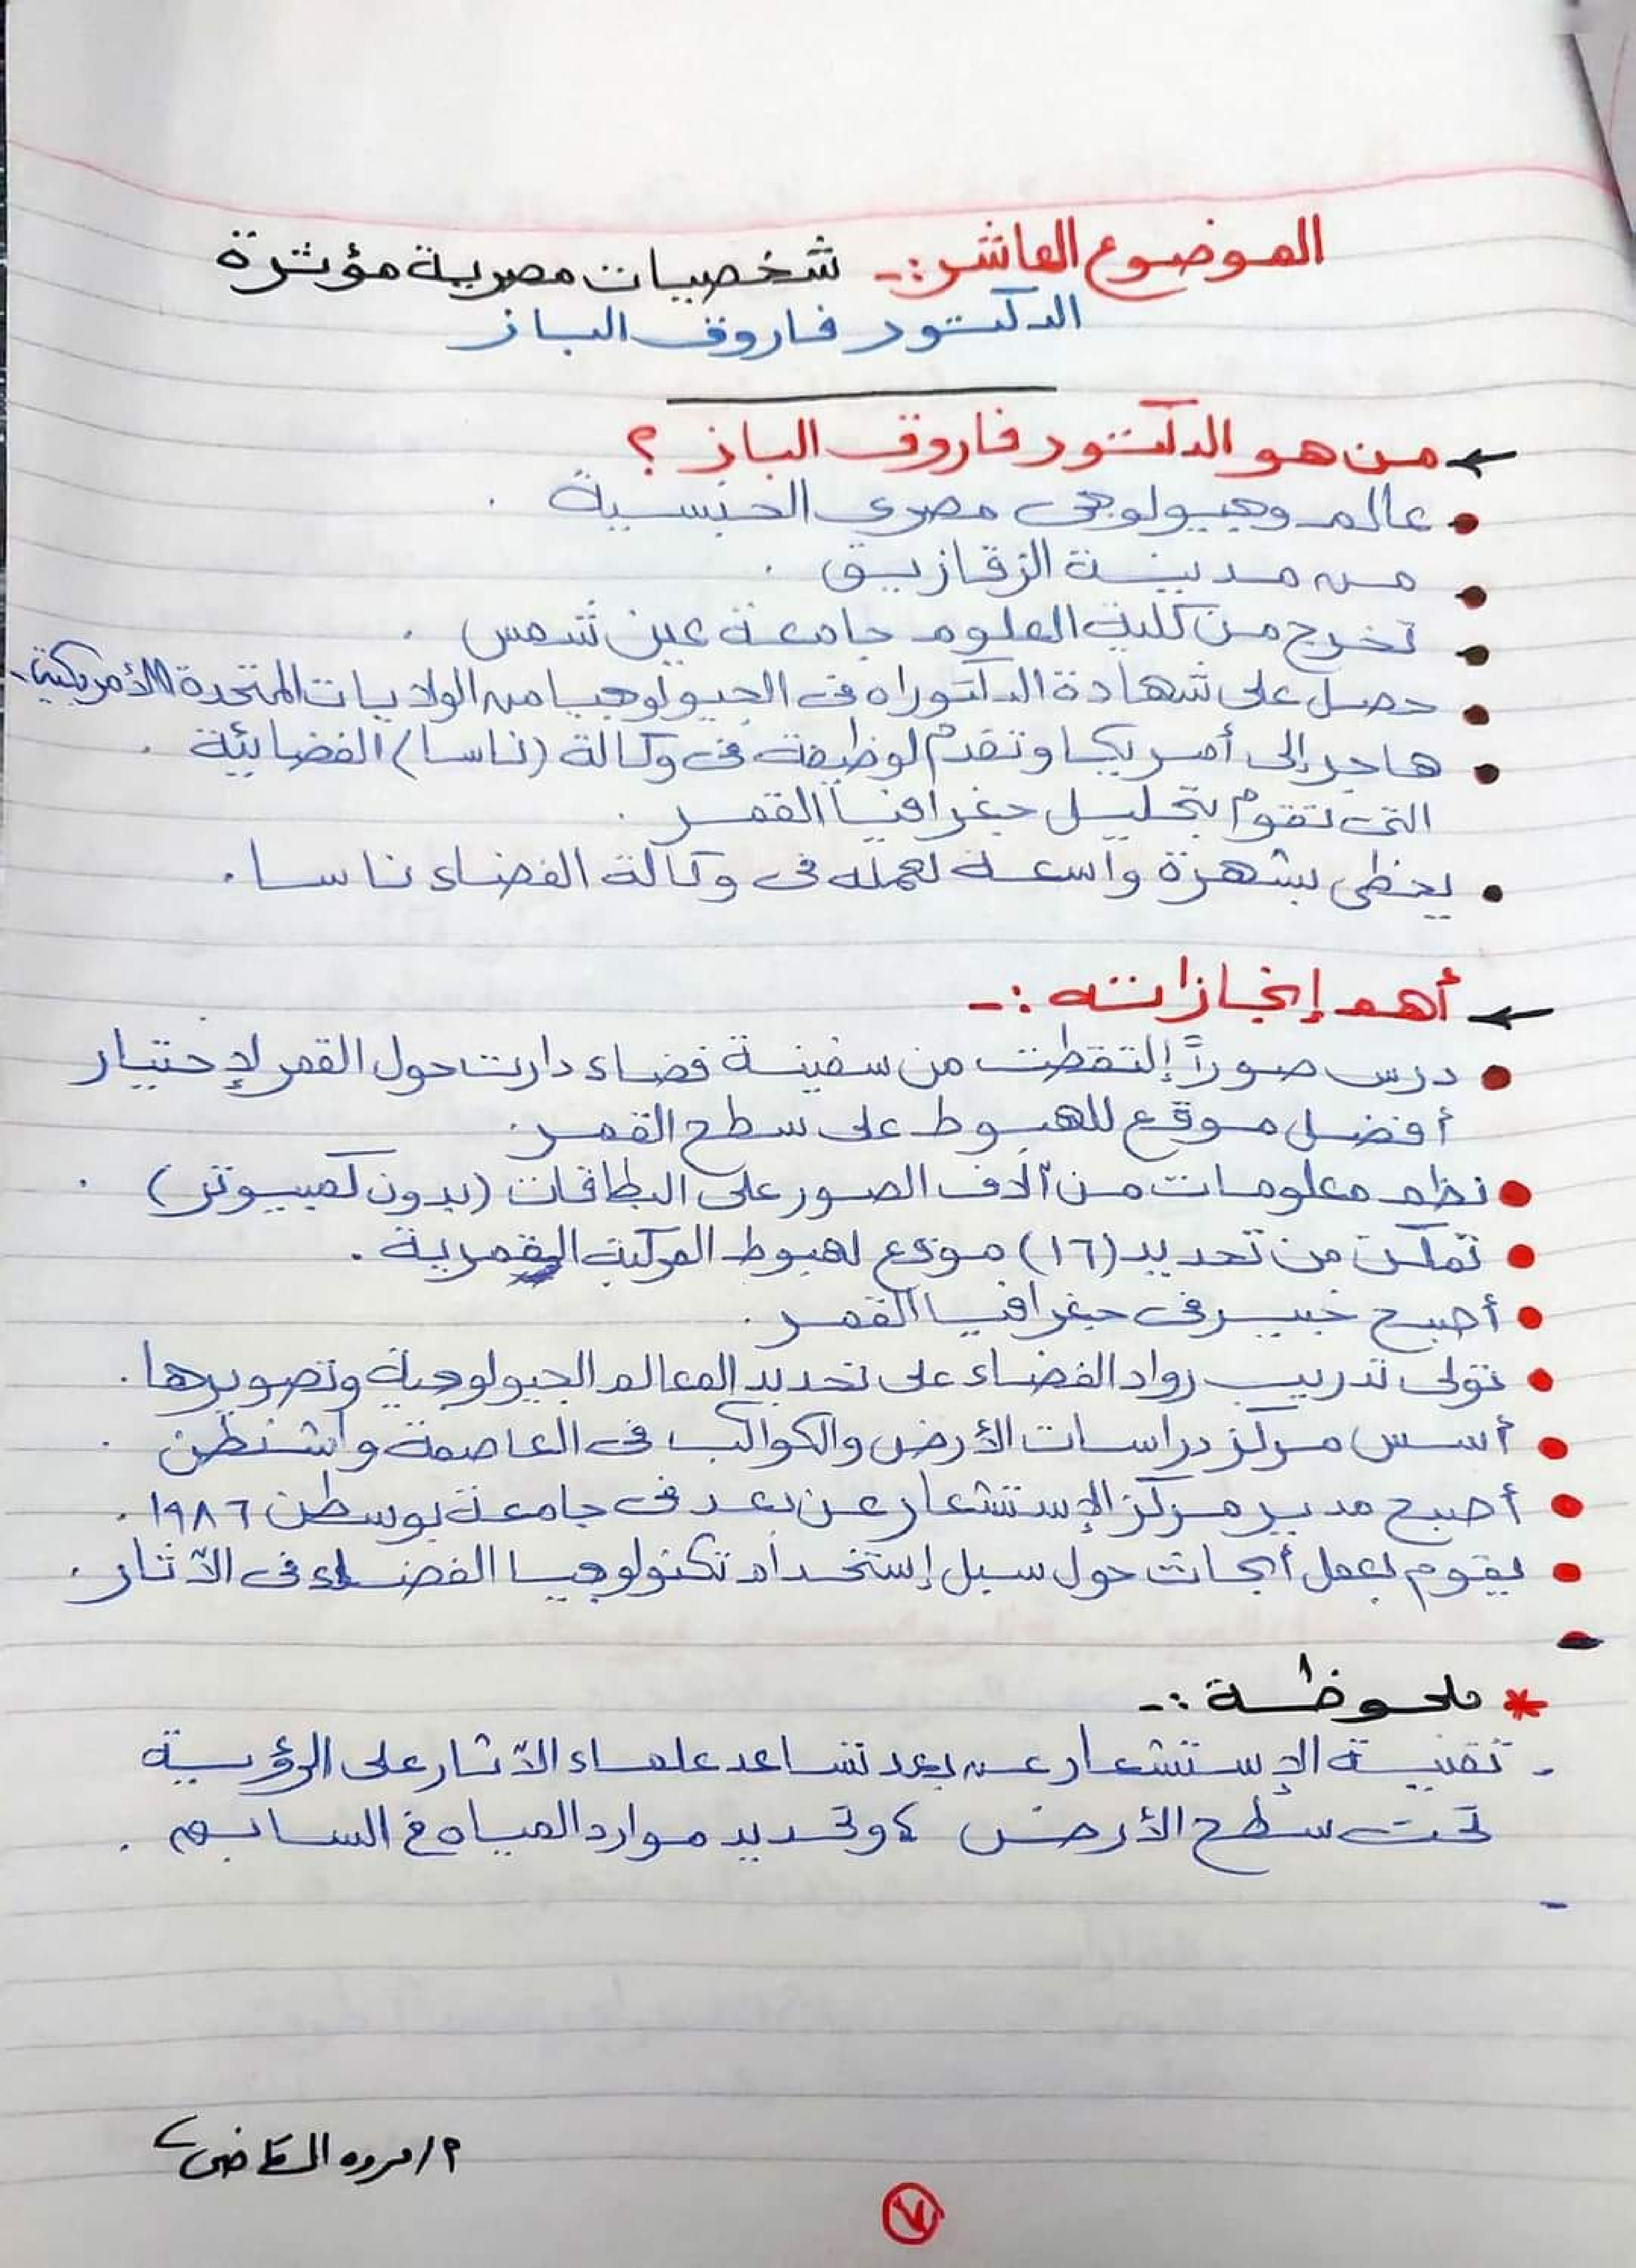 الموضوع العاشر :- شخصيات مصرية مؤثرة
الدكتور فاروق الباز
← من هو الدكتور فاروق الباز ؟
• عالم وجيولوجى مصرى الجنسية .
• من مدينة الزقازيق .
• تخرج من كلية العلوم جامعة عين شمس .
• حصل على شهادة الدكتوراه فى الجيولوجيا من الولايات المتحدة الأمريكية .
• هاجر إلى أمريكا وتقدم لوظيفة فى وكالة (ناسا) الفضائية .
التى تقوم بتحليل جغرافيا القمر .
• يحظى بشهرة واسعة لعمله فى وكالة الفضاء ناسا .
← أهم إنجازاته :-
• درس صوراً إلتقطت من سفينة فضاء دارت حول القمر لإختيار
أفضل موقع للهبوط على سطح القمر .
• نظم معلومات من آلاف الصور على البطاقات (بدون كمبيوتر) .
• تمكن من تحديد (١٦) موقع لهبوط المركبة القمرية .
• أصبح خبير فى جغرافيا القمر .
• تولى تدريب رواد الفضاء على تحديد المعالم الجيولوجية وتصويرها .
• أسس مركز دراسات الأرض والكواكب فى العاصمة واشنطن .
• أصبح مدير مركز الإستشعار عن بعد فى جامعة بوسطن ١٩٨٦ .
• يقوم بعمل أبحاث حول سبل إستخدام تكنولوجيا الفضاء فى الآثار .
* ملحوظة :-
- تقنية الإستشعار عن بعد تساعد علماء الآثار على الرؤية
تحت سطح الأرض ، وتحديد موارد المياه فى السابق .
م/ مروه القاضى
٧